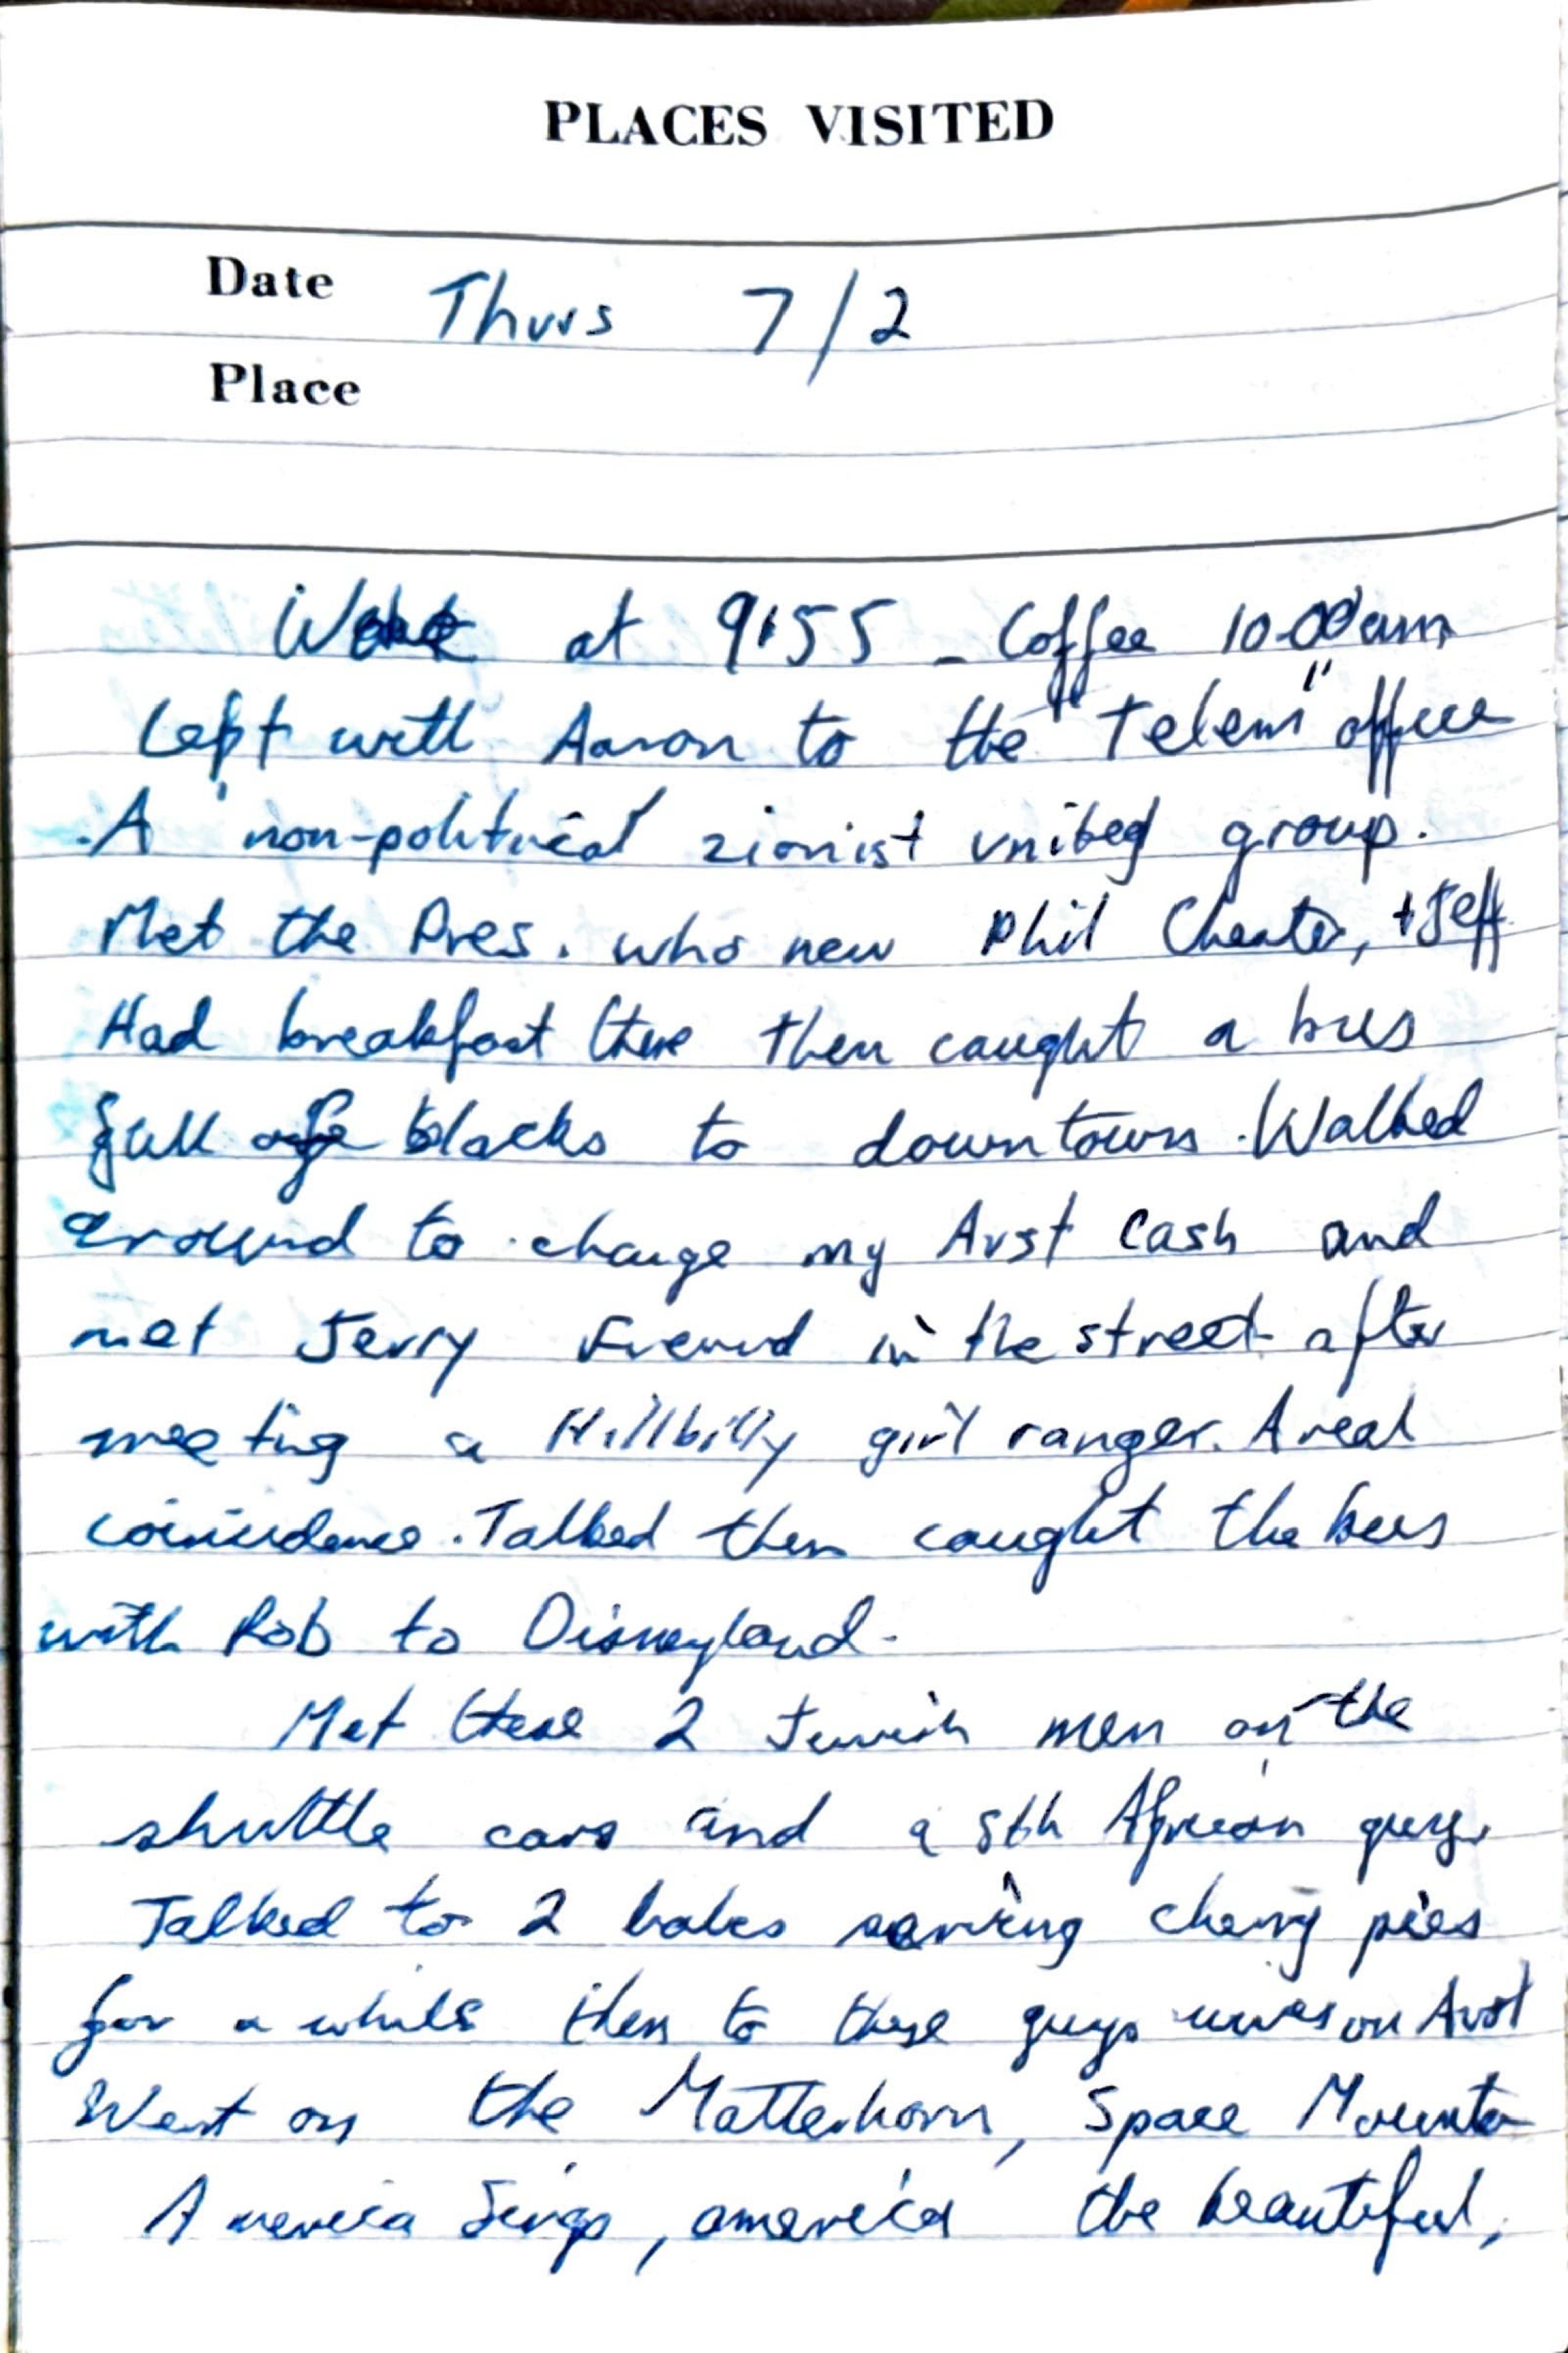 PLACES VISITED
Date Thurs 7/2
Place
Woke at 9.55 - Coffee 10.00am
Left with Aaron to the "Telem" office
A 'non-political' zionist united group.
Met the Pres. who new Phil Chester, + Jeff
Had breakfast there then caught a bus
full of blacks to downtown. Walked
around to change my Aust cash and
met Jerry in the street after
meeting a Hillbilly girl ranger. A real
coincidence. Talked then caught the bus
with Rob to Disneyland.
Met these 2 Jewish men on the
shuttle cars and a Sth African guy.
Talked to 2 babes serving cherry pies
for a while then to these guys on Aust
Went on the Matterhorn, Space Mountain
America Sings, america the beautiful,